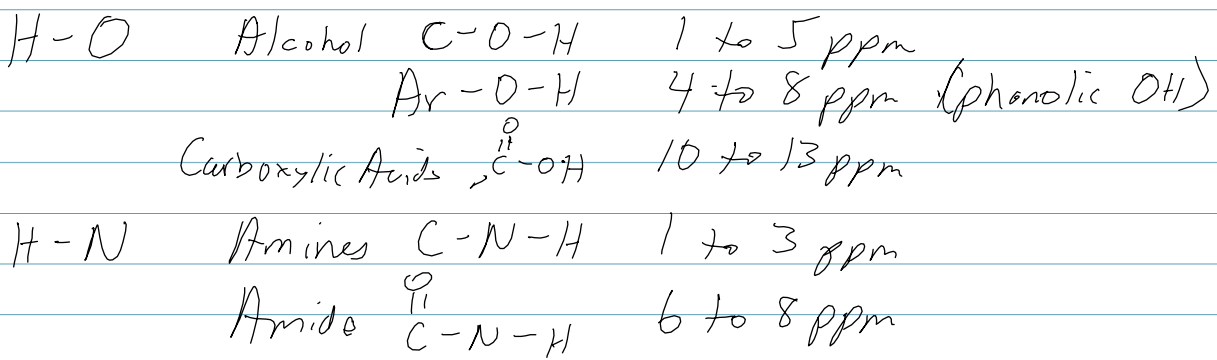 H-O Alcohol C-O-H 1 to 5 ppm
Ar-O-H 4 to 8 ppm (phenolic OH)
O
Carboxylic Acids, C-OH 10 to 13 ppm
H-N Amines C-N-H 1 to 3 ppm
O
Amide C-N-H 6 to 8 ppm